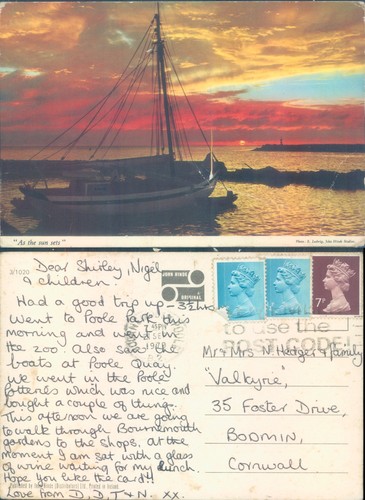 "As the sun sets"
Photo: E. Ludwig, John Hinde Studios
3/1020
JOHN HINDE
ORIGINAL
Dear Shirley, Nigel
& children.
Had a good trip up - 3½ hrs
Went to Poole Park this
morning and
the zoo. Also saw the
boats at Poole Quay.
We went in the Poole
Potteries which was nice and
bought a couple of things.
This afternoon we are going
to walk through Bournemouth
gardens to the shops. At the
moment I am sat with a glass
of wine waiting for my lunch.
Hope you like the card!!
Love from D, D, T & N. xx.
7P
to use the
POST CODE
Mr & Mrs N Hedger & family
"Valkyrie",
35 Foster Drive,
BODMIN,
Cornwall
Published by John Hinde (Distributors) Ltd. Printed in Ireland